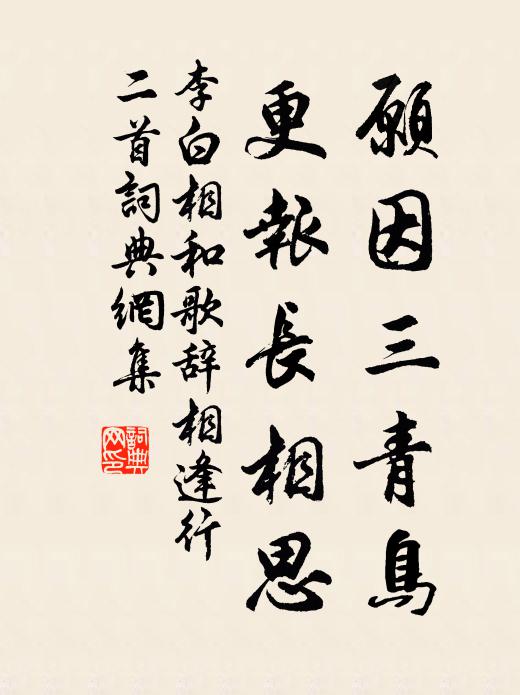 願因三青鳥
更報長相思
李白相和歌辞相逢行
二首詞典網集
詞典
网印